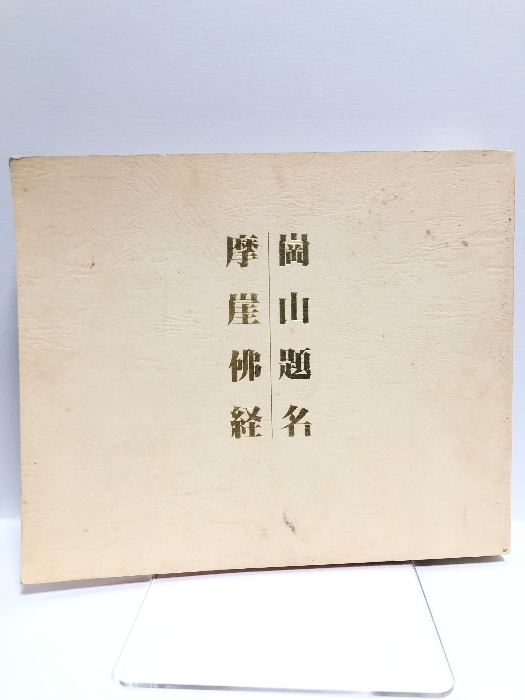 崗山題名
摩崖佛経